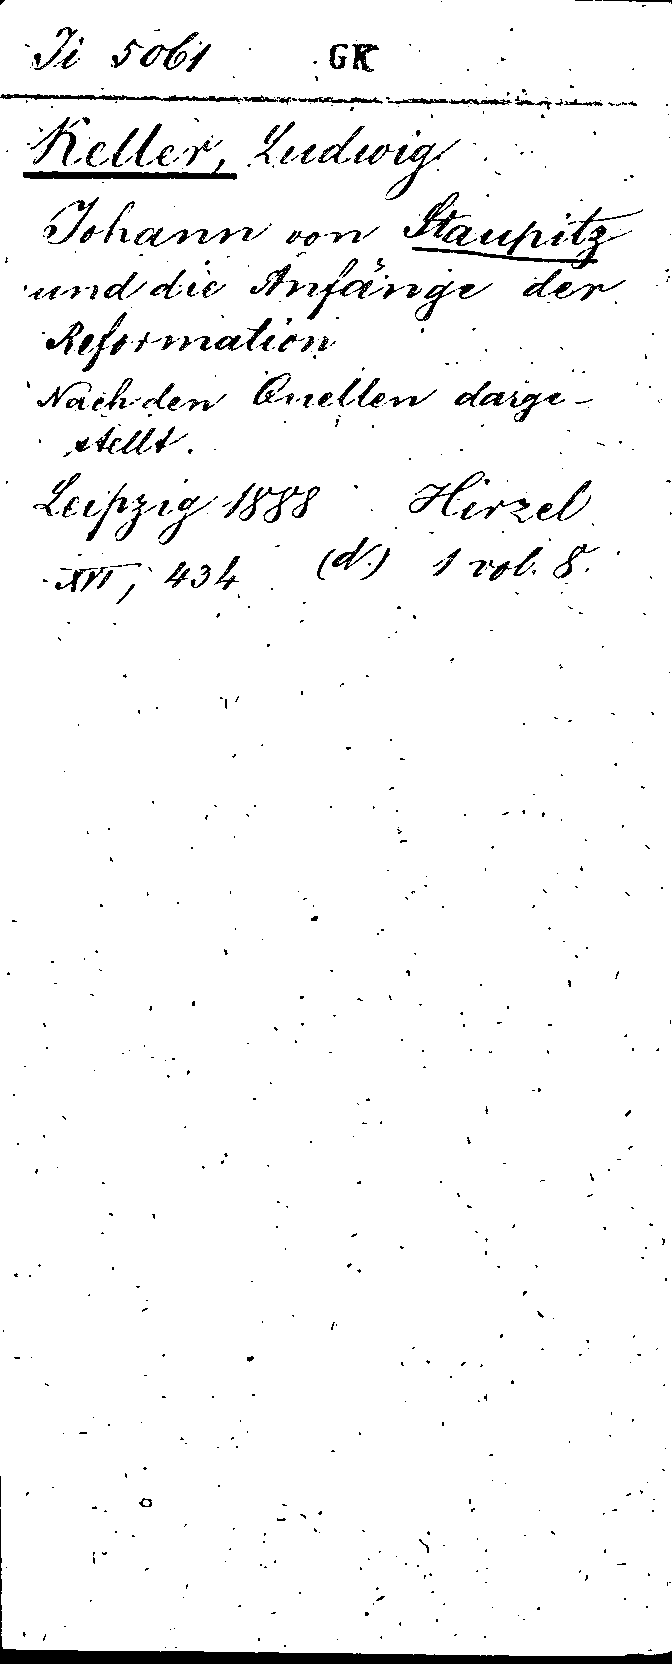 Ji 5061 GK
Keller, Ludwig
Johann von Staupitz
und die Anfänge der
Reformation
Nach den Quellen darge-
stellt.
Leipzig 1888 Hirzel
XVI, 434 (d.) 1 vol. 8.